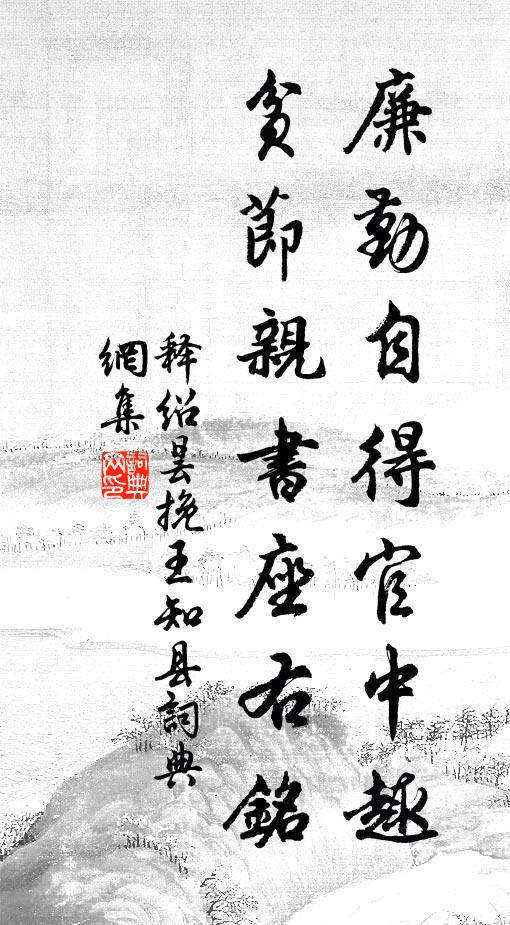 廉勤自得官中趣
貧節親書座右銘
释绍昙挽王知县詞典
網集
詞典